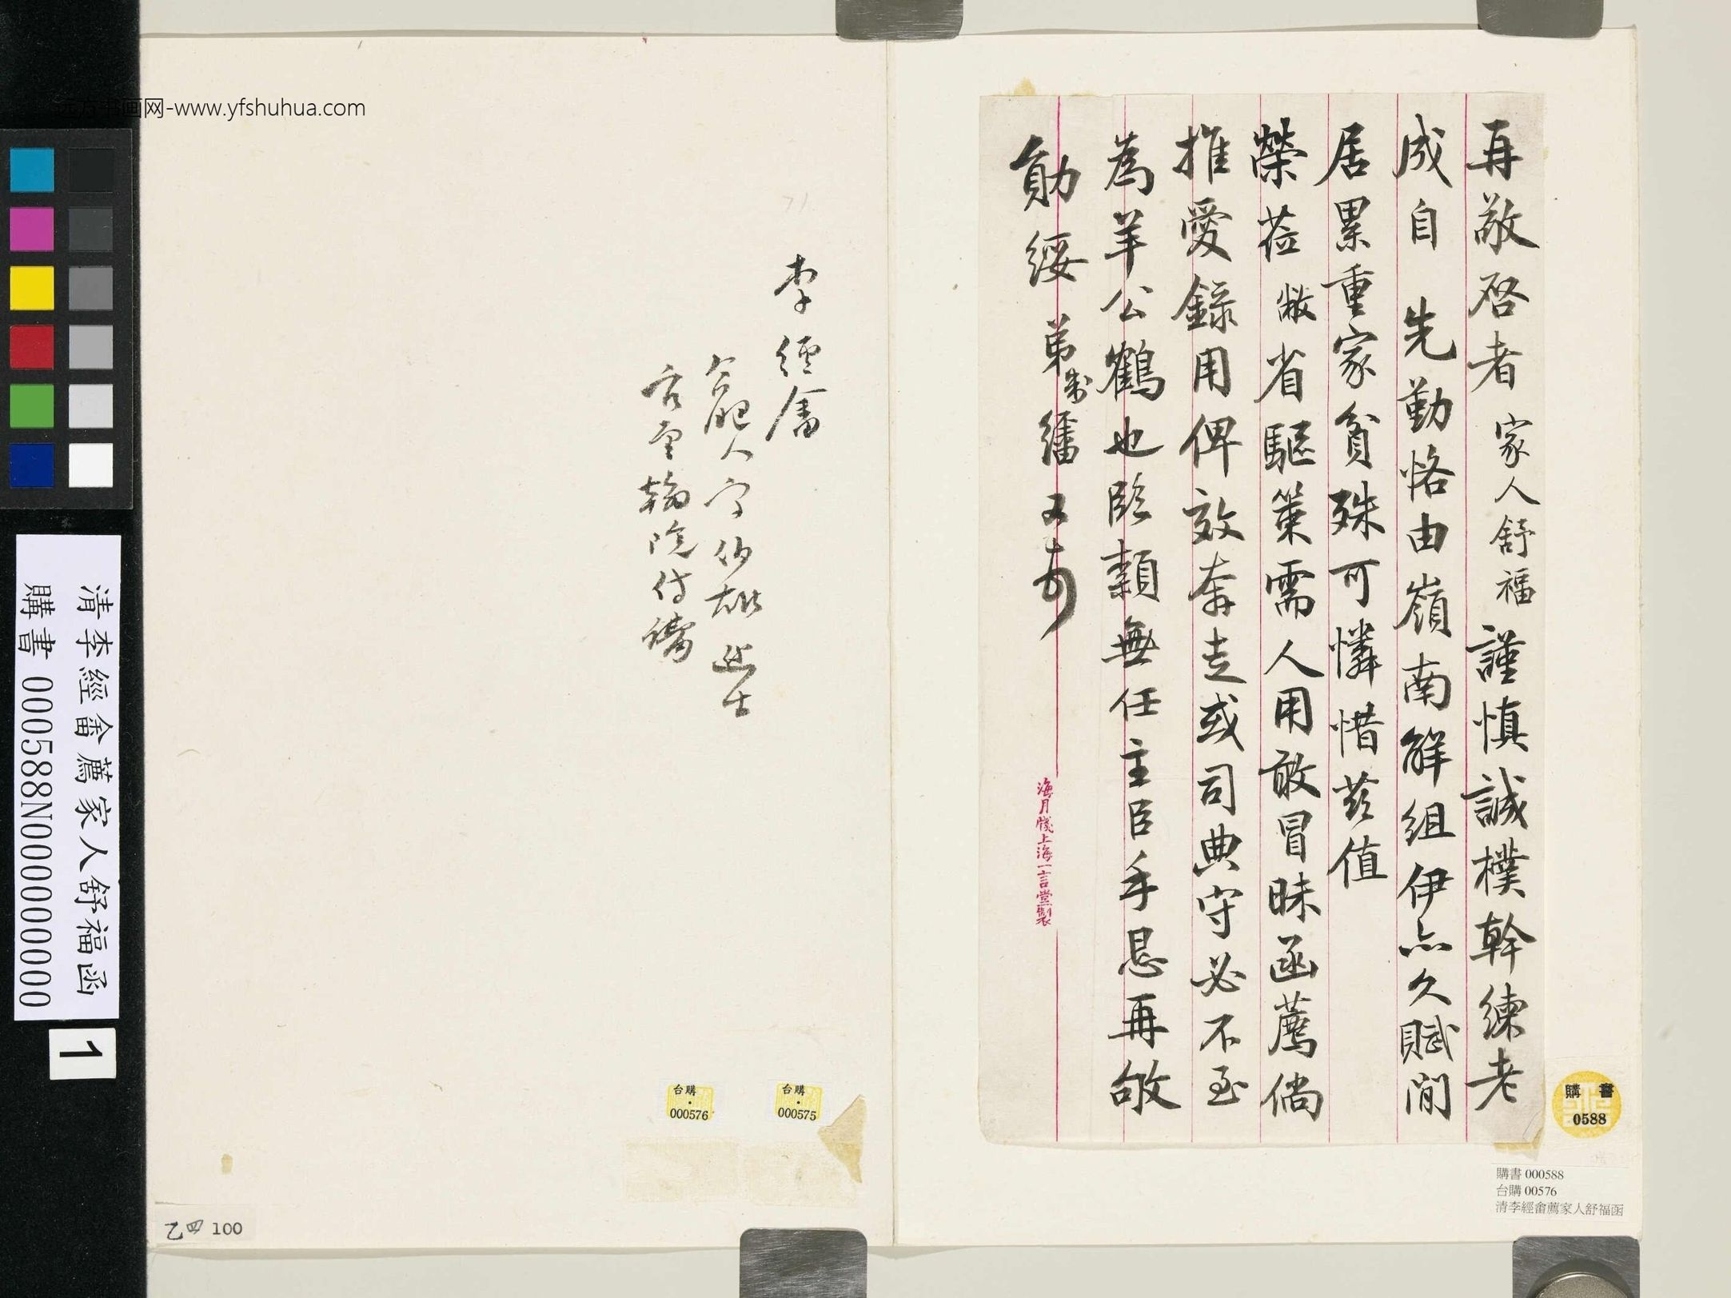 再敬啓者家人舒福謹慎誠樸幹練老
成自 先勤恪由嶺南解組伊亦久賦閒
居累重家貧殊可憐惜茲值
榮蒞敝省驅策需人用敢冒昧函薦倘
推愛錄用俾效奔走或司典守必不至
為羊公鶴也臨穎無任主臣手恳再敂
勛綏 弟制 又
海月牋上海一言堂製
李經畬
合肥人字伯雄進士
官至翰院侍講
购書 0588
購書 000588
台購 00576
清李經畬薦家人舒福函
台購·000575
台購·000576
清李經畬薦家人舒福函
購書 000588N000000000
1
乙四 100
远方书画网-www.yfshuhua.com